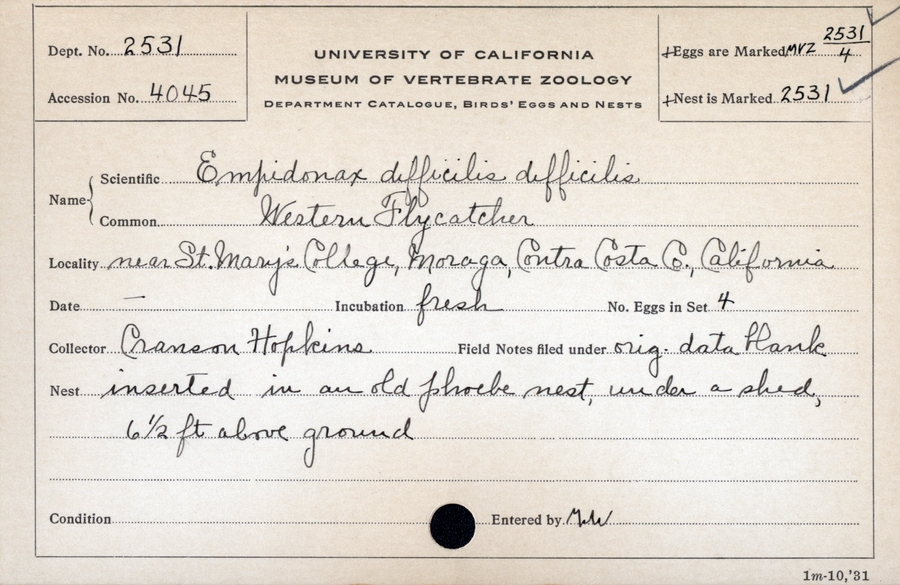 Dept. No. 2531
Accession No. 4045
UNIVERSITY OF CALIFORNIA
MUSEUM OF VERTEBRATE ZOOLOGY
DEPARTMENT CATALOGUE, BIRDS' EGGS AND NESTS
+Eggs are Marked MVZ 2531/4
+Nest is Marked 2531
Name { Scientific Empidonax difficilis difficilis
Common Western Flycatcher
Locality near St. Mary's College, Moraga, Contra Costa Co., California
Date — Incubation fresh No. Eggs in Set 4
Collector Cranson Hopkins Field Notes filed under orig. data blank
Nest inserted in an old phoebe nest, under a shed,
6 1/2 ft above ground
Condition Entered by
1m-10,'31